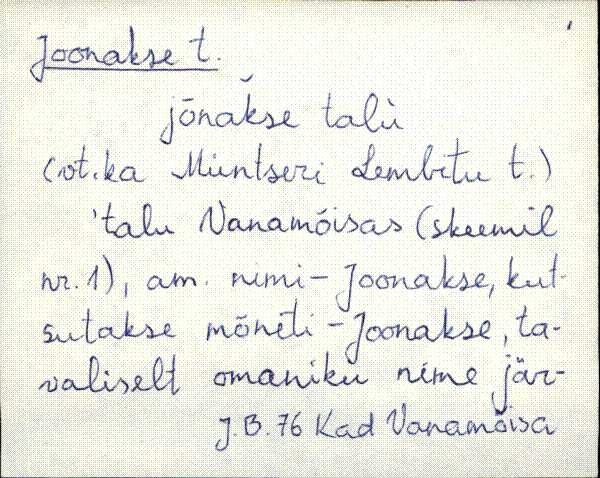 Joonakse t.
jōnak̆se talù
(vt. ka Müntseri Lembitu t.)
'talu Vanamõisas (skeemil
nr. 1), am. nimi - Joonakse, kut-
sutakse mõneti - Joonakse, ta-
valiselt omaniku nime jär-
J.B. 76 Kad Vanamõisa